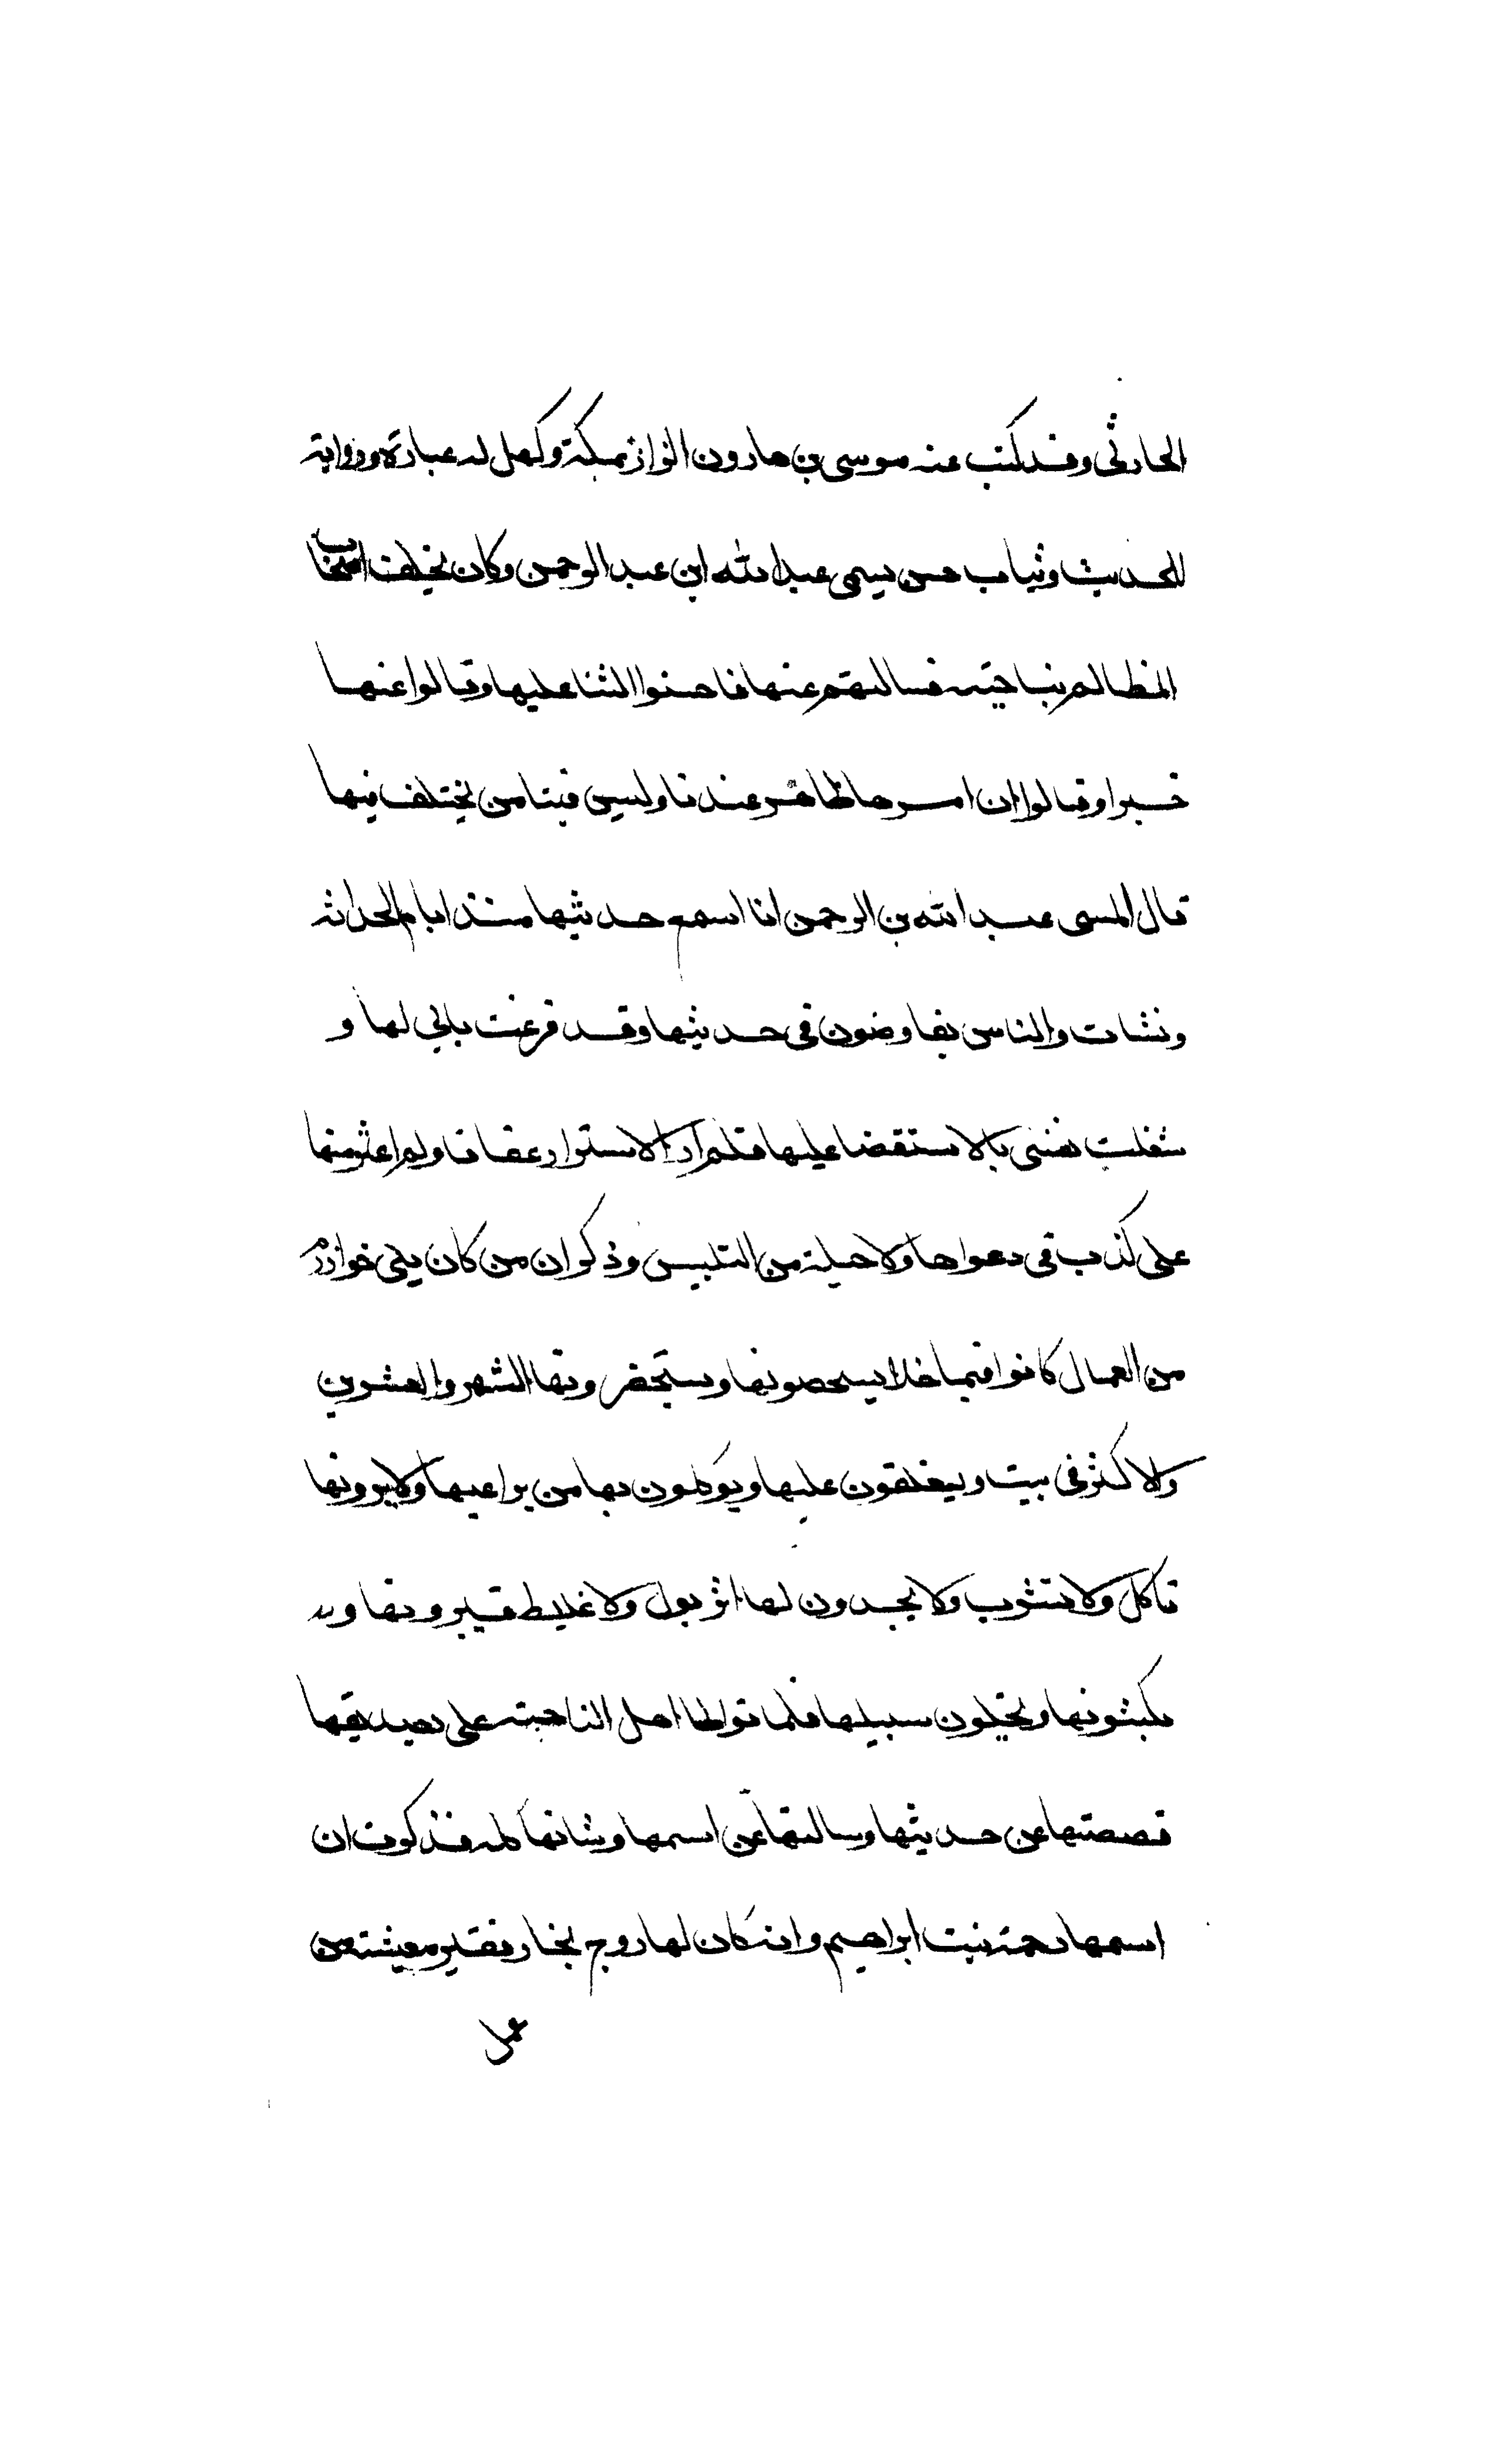 الحارثى وقد كتب عنه موسى بن هارون البزاز بمكة وكهل له عبارة ورواية
للحديث وثياب حسن يسمى عبد الله ابن عبد الرحمن وكان يخلف اصحاب
المظالم بناحيته فسالتهم عنها فاحسنوا الثنا عليها وقالوا عنها
خبرا وقالوا ان امرها ظاهر عندنا وليس فينا من يختلف فيها
قال المسمى عبد الله بن الرحمن انا اسمع حديثها منذ ايام الحداثه
ونشات والناس يفاوضون فى حديثها وقد فرغت بالى لها و
شغلت نفسى بالاستقصا عليها فلم ار الا سترا وعفافا ولم اعثر منها
على كذب فى دعواها ولا حيلة من التلبيس وذكر ان من كان يلى خوارزم
من العمال كانوا فيما خلا يستحصونها ويستحضرونها الشهر والعشرين
والاكثر فى بيت ويغلقون عليها ويوكلون بها من يراعيها ولا يرونها
تاكل ولا تشرب ولا يجدون لها اثر بول ولا غليط فيبرونها و
يكبثونها ويخلون سبيلها فلما تواطا اهل الناحية على تصديقها
قصصتها عن حديثها وسالتها عن اسمها وشانها كله فذكرت ان
اسمها رحمة بنت ابراهيم وانه كان لها زوج نجار فقير معيشته من
عمل